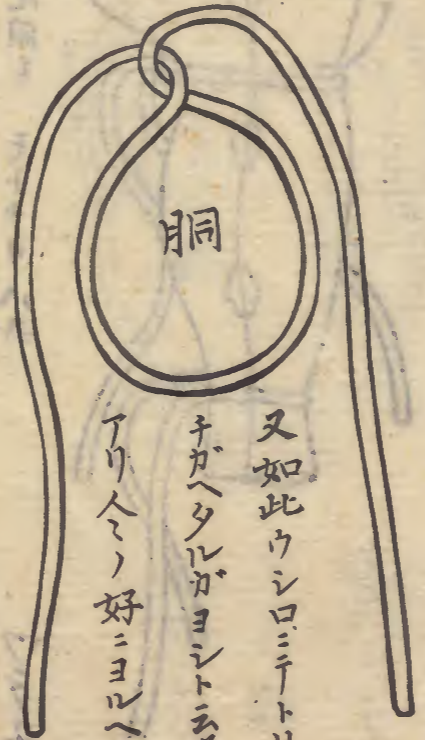 胴
又如此ウシロニテトリ
チガヘタルガヨシト云
アリ人ノ好ニヨルヘ